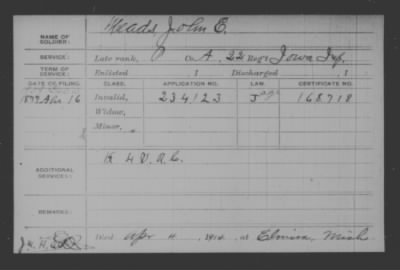 Meads John E.
NAME OF SOLDIER:
SERVICE: Late rank, P Co. A, 22 Reg't Iowa Inf.
TERM OF SERVICE: Enlisted , 1 Discharged , 1
DATE OF FILING. CLASS. APPLICATION NO. LAW. CERTIFICATE NO.
1877 Apr 16 Invalid, 234,123 168718
Widow,
Minor,
ADDITIONAL SERVICES: K 4 V.R.C.
REMARKS:
Died Apr 11, 1914, at Elmira, Mich